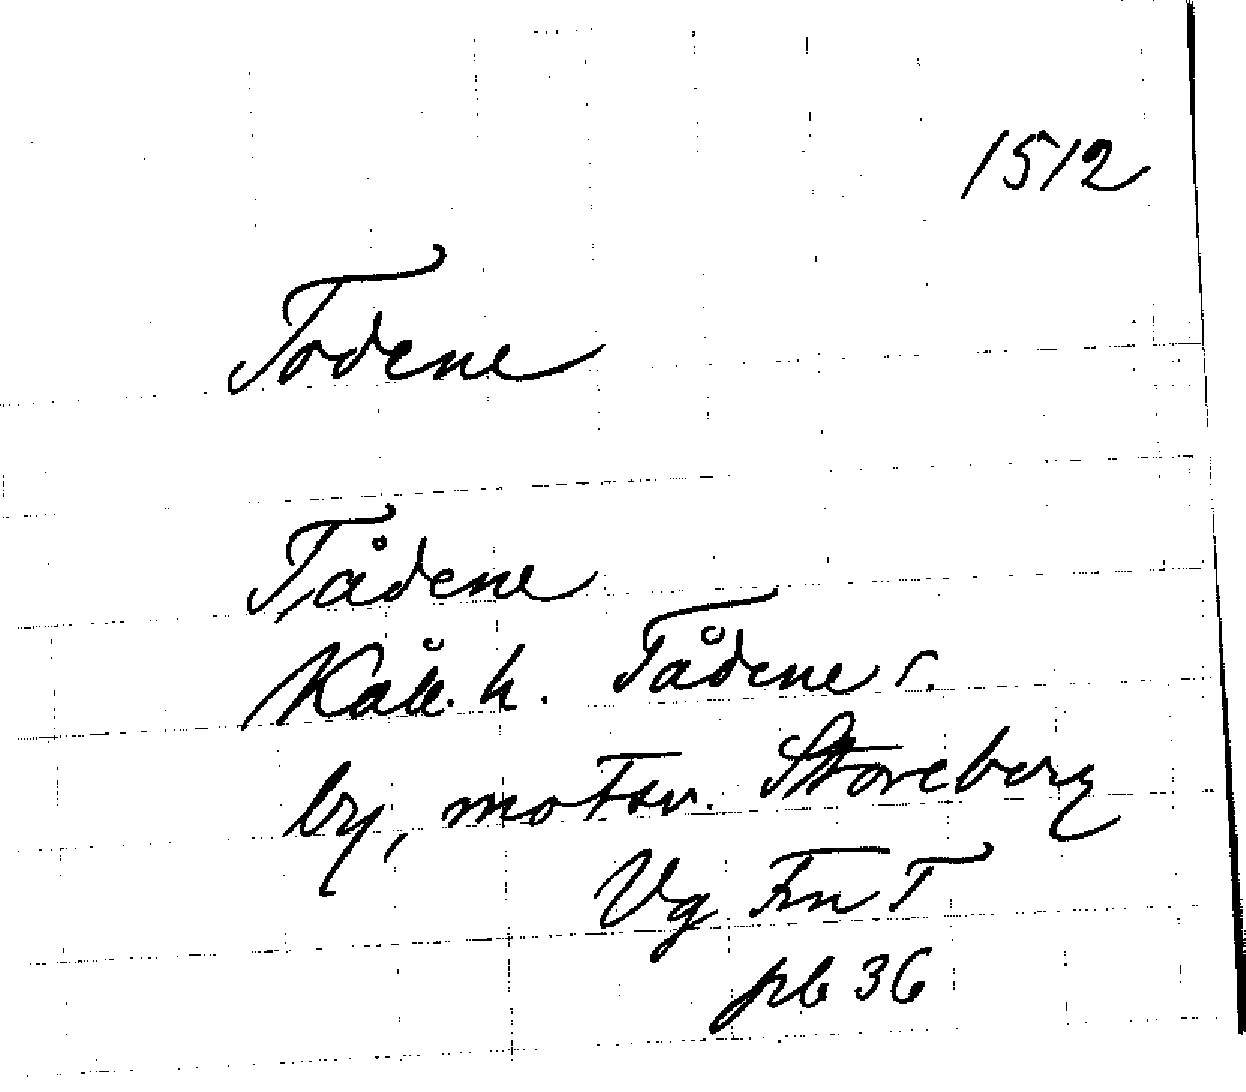 1512
Todene
Tådene
Kåll. h. Tådene s.
by, motsv. Storeberg
Vg Fn T
pb 36